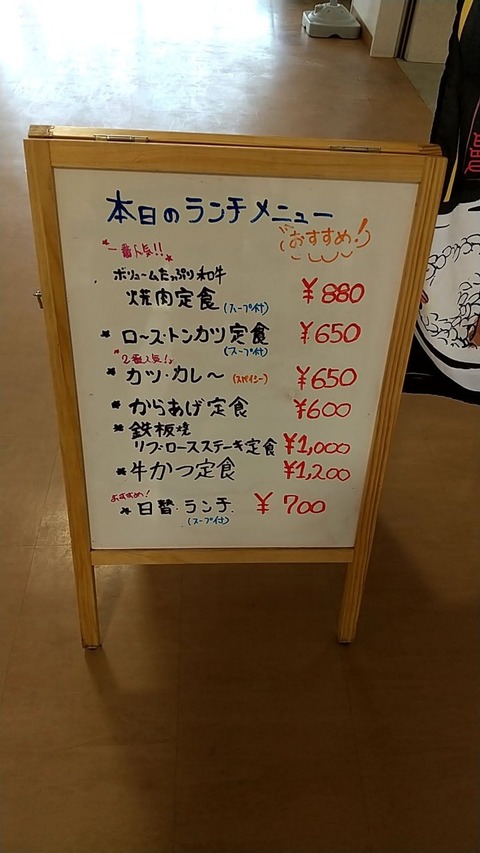 本日のランチメニュー
おすすめ!
一番人気!!
ボリュームたっぷり和牛
焼肉定食(スープ付) ¥880
*ロースートンカツ定食 ¥650
(スープ付)
2番人気!!
*カツ・カレ〜(スパイシー) ¥650
*からあげ定食 ¥600
*鉄板焼
リブ・ロースステーキ定食 ¥1,000
*牛かつ定食 ¥1,200
おすすめ!
*日替・ランチ ¥700
(スープ付)